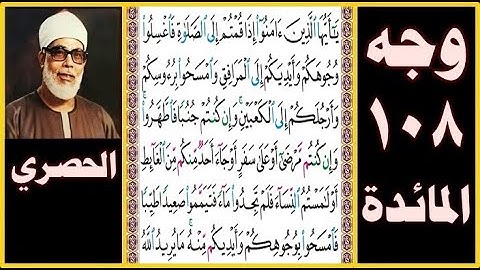 وجه
١٠٨
المائدة
يَٰٓأَيُّهَا ٱلَّذِينَ ءَامَنُوٓا۟ إِذَا قُمْتُمْ إِلَى ٱلصَّلَوٰةِ فَٱغْسِلُوا۟
وُجُوهَكُمْ وَأَيْدِيَكُمْ إِلَى ٱلْمَرَافِقِ وَٱمْسَحُوا۟ بِرُءُوسِكُمْ
وَأَرْجُلَكُمْ إِلَى ٱلْكَعْبَيْنِ ۚ وَإِن كُنتُمْ جُنُبًا فَٱطَّهَّرُوا۟ ۚ
وَإِن كُنتُم مَّرْضَىٰٓ أَوْ عَلَىٰ سَفَرٍ أَوْ جَآءَ أَحَدٌ مِّنكُم مِّنَ ٱلْغَآئِطِ
أَوْ لَٰمَسْتُمُ ٱلنِّسَآءَ فَلَمْ تَجِدُوا۟ مَآءً فَتَيَمَّمُوا۟ صَعِيدًا طَيِّبًا
فَٱمْسَحُوا۟ بِوُجُوهِكُمْ وَأَيْدِيكُم مِّنْهُ ۚ مَا يُرِيدُ ٱللَّهُ
الحصري